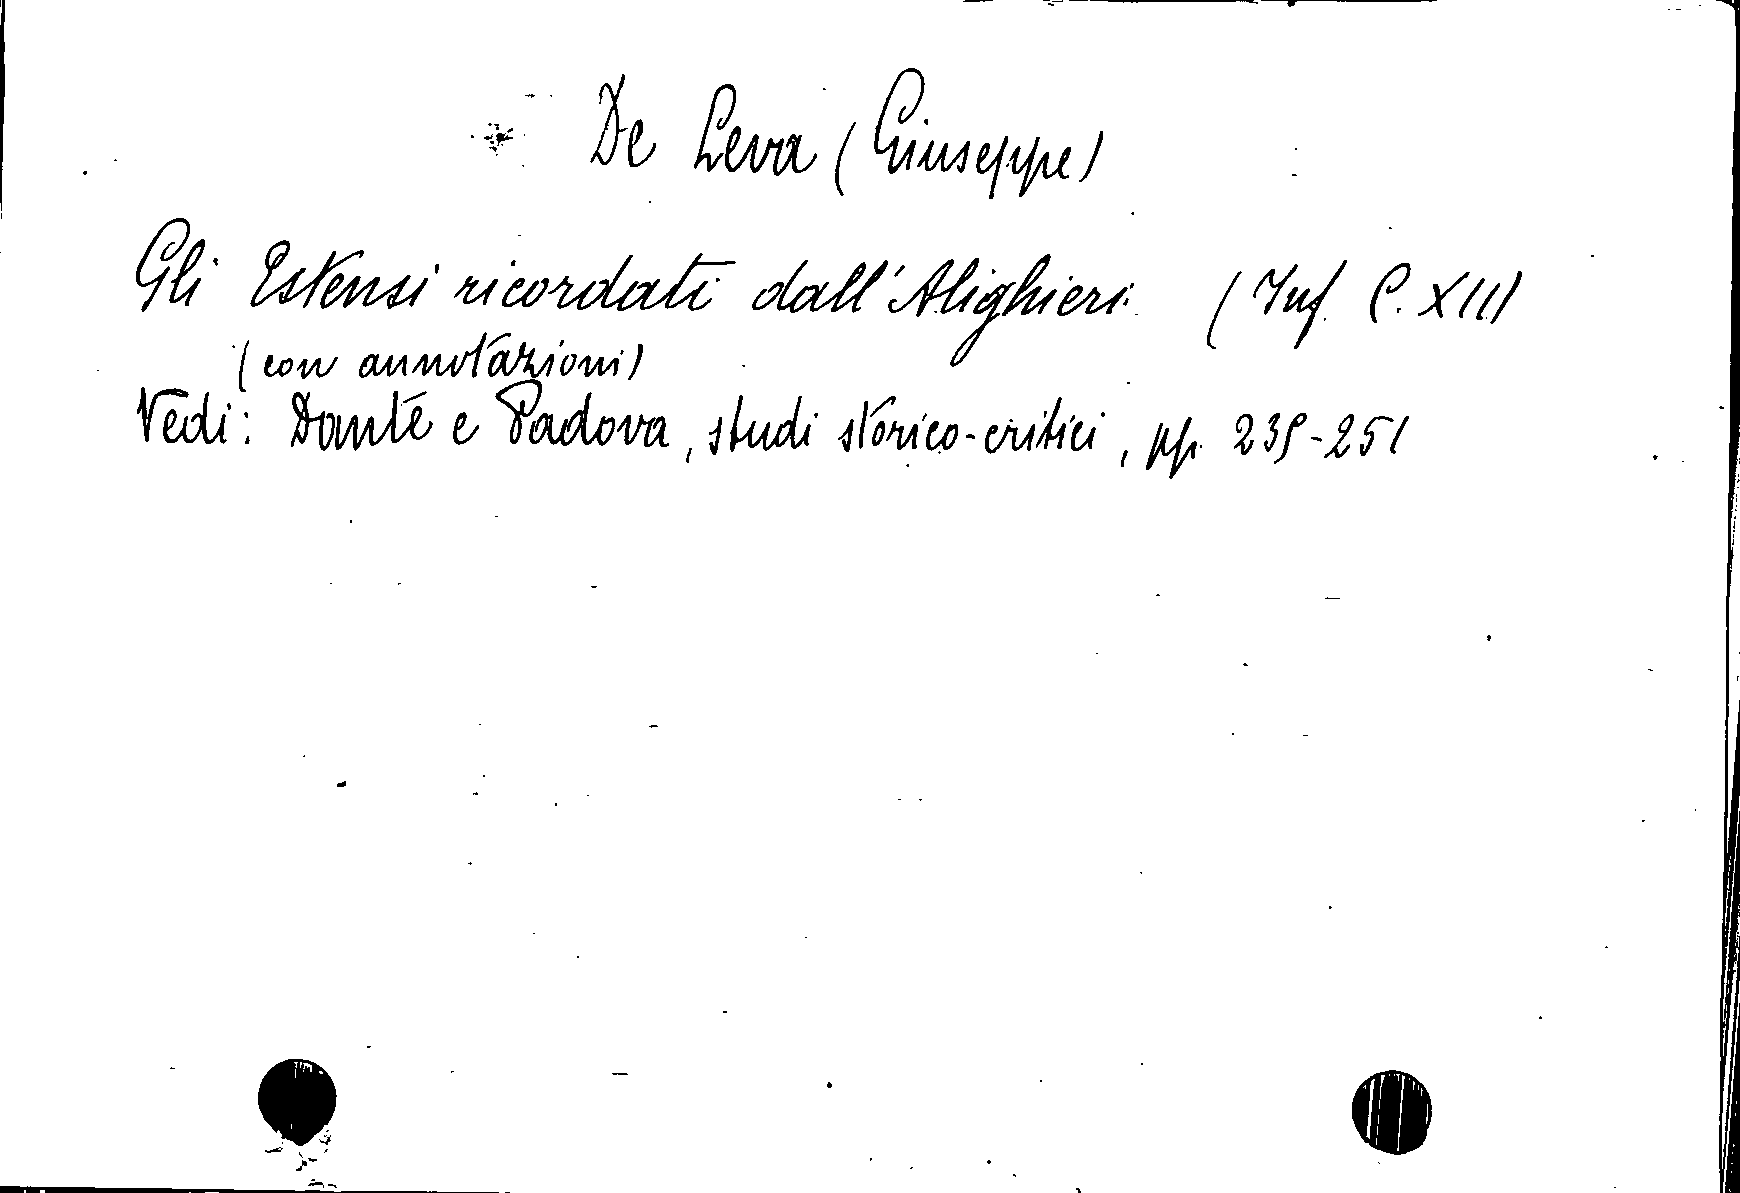 De Leva (Giuseppe)
Gli Estensi ricordati dall'Alighieri (Inf. C. XII)
(con annotazioni)
Vedi: Dante e Padova, studi storico-critici, pp. 239-251